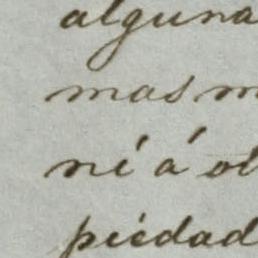 alguna
mas m
ni á ot
piedad